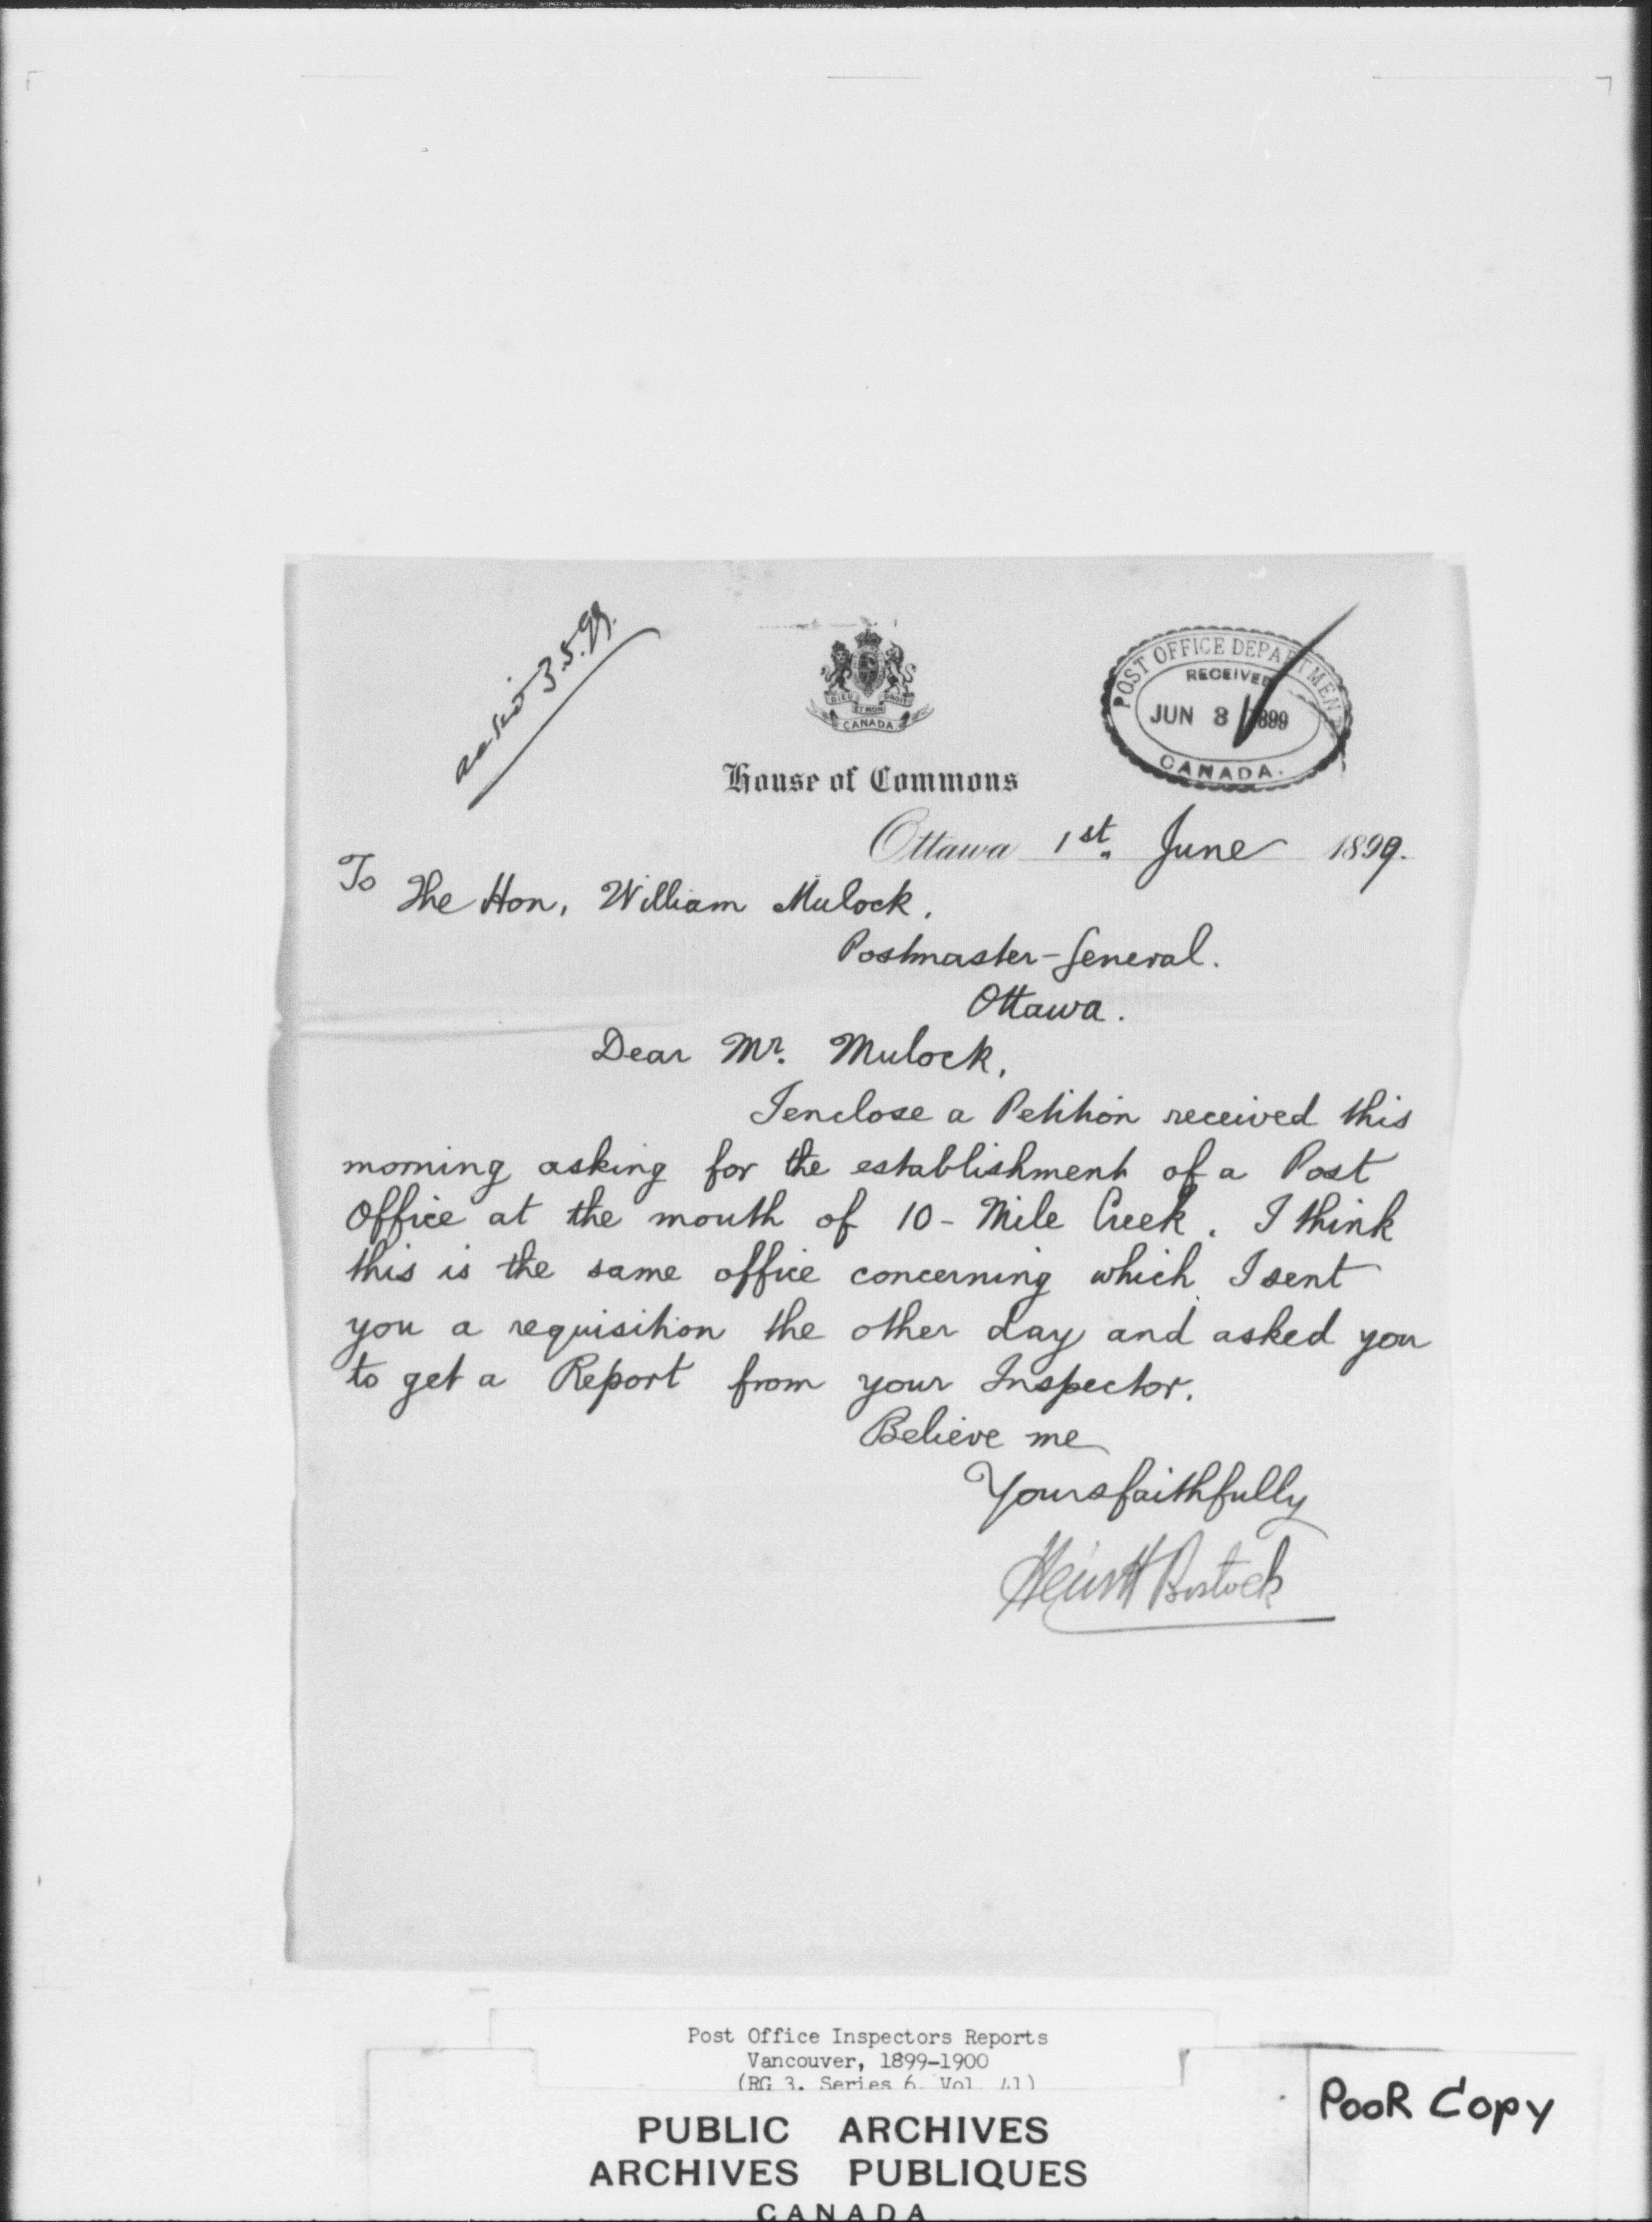 3.5.99.
DIEU ET MON DROIT
CANADA
POST OFFICE DEPARTMENT
RECEIVED
JUN 3 1899
CANADA.
House of Commons
Ottawa 1st June 1899.
To
The Hon, William Mulock,
Postmaster-General.
Ottawa.
Dear Mr. Mulock,
I enclose a Petition received this
morning asking for the establishment of a Post
Office at the mouth of 10-Mile Creek. I think
this is the same office concerning which I sent
you a requisition the other day and asked you
to get a Report from your Inspector.
Believe me
Yours faithfully
Hewitt Bostock
Post Office Inspectors Reports
Vancouver, 1899-1900
(RG 3, Series 6, Vol. 41)
PUBLIC ARCHIVES
ARCHIVES PUBLIQUES
CANADA
POOR COPY